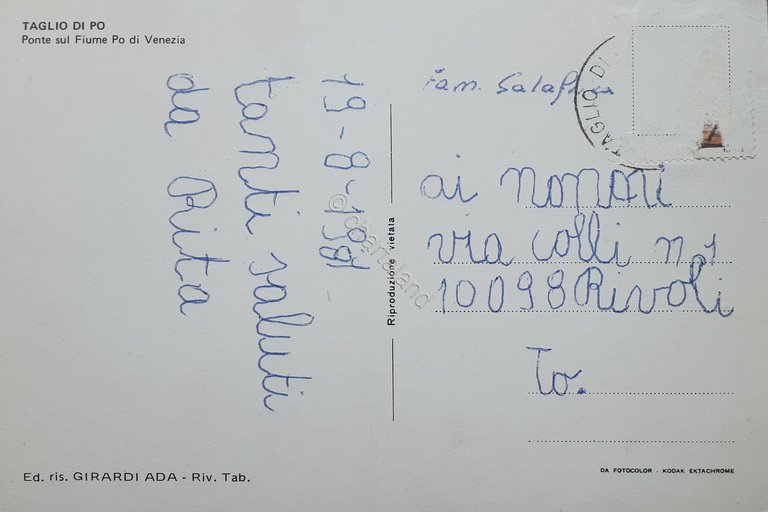 TAGLIO DI PO
Ponte sul Fiume Po di Venezia
19-8-1981
tanti saluti
da Rita
Riproduzione vietata
Fam.
TAGLIO DI
ai nonni
via Colli n. 1
10098 Rivoli
To.
Ed. ris. GIRARDI ADA - Riv. Tab.
DA FOTOCOLOR - KODAK EKTACHROME
© chartaland